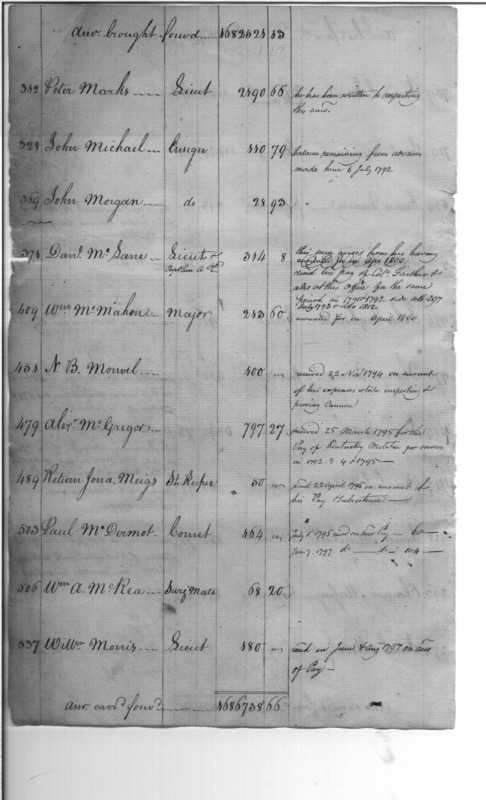 Amt. brought forwd. 4682524 43
342 Peter Marks Lieut 2490 66 he has been written to respecting
this amt.
328 John Michael Ensign 440 79 balance remaining from advances
made him 6 July 1792
369 John Morgan do 28 93
374 Danl. McLane Lieut & 344 8 this sum arises from his having
Captain accounted for in Apr 1800
recd his pay of Colo. & 
also at this office for the same
period in 1791 & 1792
409 Wm McMahon Major 243 60 accounted for in April 1800
454 N. B. Monvel 400 received 22 Nov 1794 on account
of his expenses while inspecting &
proving Cannon
479 Alexr. McGregor 797 27 received 25 March 1795 for the
Pay of Kentucky Militia for services
in 1792. 3. 4 & 1795
489 Return Jona. Meigs St. Keeper 50 recd 22 April 1795 on account of
his Pay & Subsistence
503 Paul McDermot Cornet 464 July 1. 1795 recd on acct Pay 60
Jan 7. 1797 do do 404
506 Wm A. McRea Surg Mate 68 20
537 Willm Morris Lieut 480 recd in June & Aug 1797 on acct
of Pay
Amt. carrd. forwd. 4686738 66